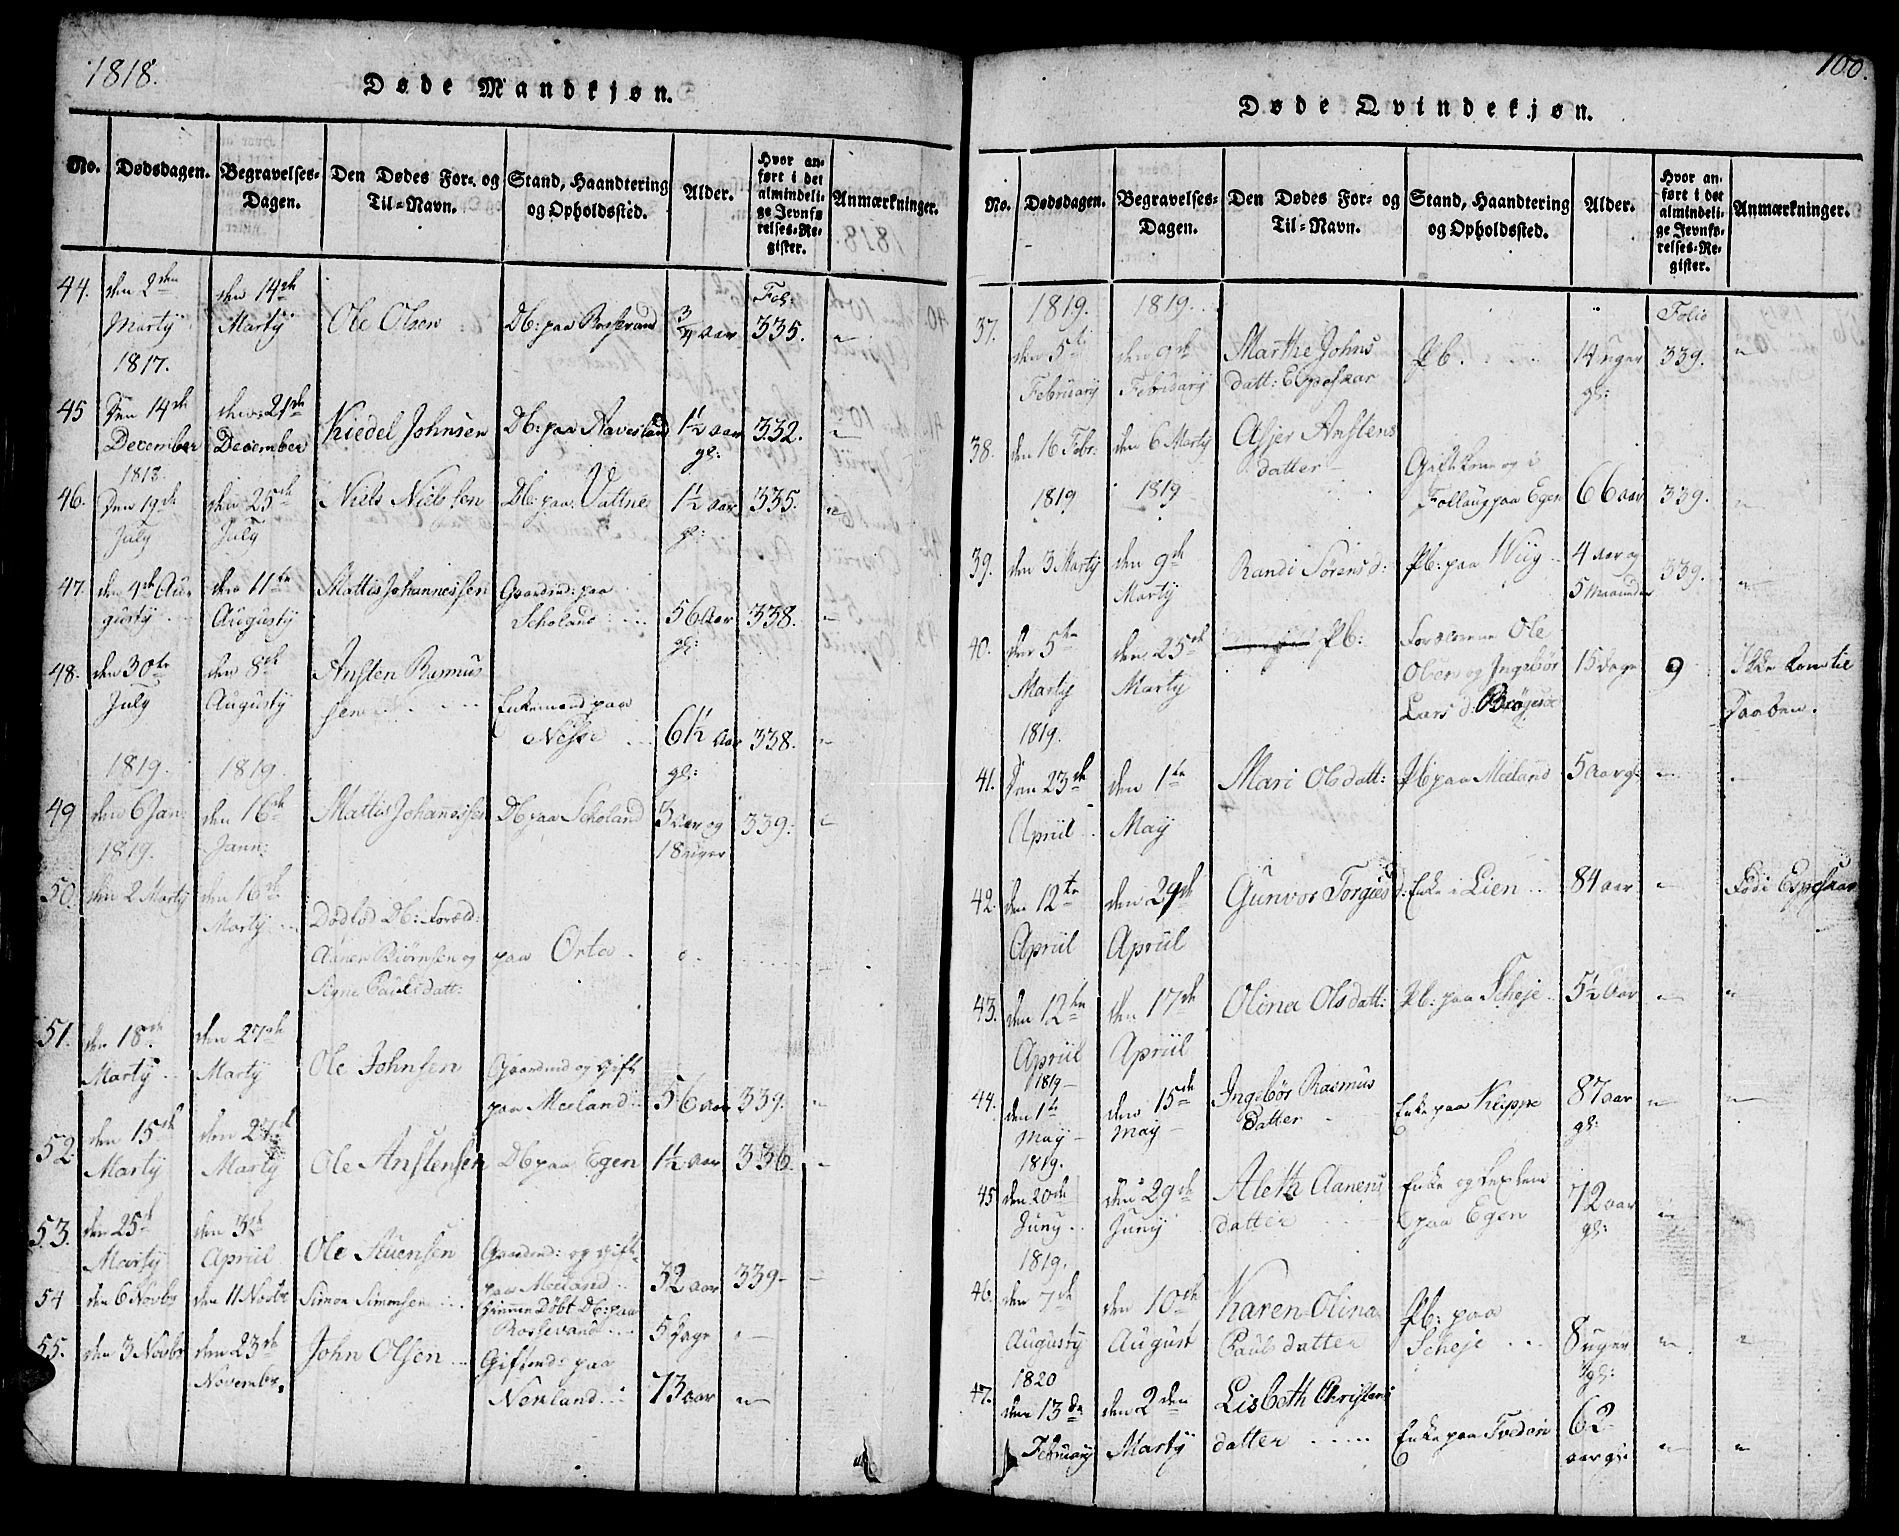 1818.
Døde Mandkjøn.
No. Dødsdagen. Begravelses-Dagen. Den Dødes For- og Til-Navn. Stand, Haandtering og Opholdssted. Alder. Hvor anført i det almindelige Jevnførelses-Register. Anmærkninger.
44. den 2den Martij den 14de Martij Ole Olsen Db: paa Rossevand 3/4 aar Fol: 335. "
1817.
45 Den 14de December den 21de December Kiedel Johnsen Db: paa Haavesland 1½ aar gl: 332. "
1818.
46. Den 19de July den 25de July Niels Nielssen Db: paa Vattne 1½ aar gl: 335. "
47. den 4de Augusty den 11te Augusty Mattis Johannessen Gaardmd: paa Scholand 56 aar gl: 338. "
48. den 30te July den 8de Augusty Ansten Rasmussen Enkemand paa Nesse 61½ aar gl: 338. "
1819. 1819.
49 den 6 Jan: 1819. den 16de Jann: Mattis Johanessen Db paa Scholand 3 aar og 18 uger 339. "
50. den 2 Marty den 16de Marty Dødfød Db: Foræld: Aanen Biørnsen og Signe Paulsdatt: paa Orta
51. den 18de Marty den 27de Marty Ole Johnsen Gaardmd og Gift paa Meeland 56 aar 339. "
52. den 15de Marty den 21de Marty Ole Anstensen Db paa Egen 1½ aar 336. "
53. den 25de Marty den 3de Apriil Ole Stuensen Gaardmd: og Gift paa Meeland 32 aar 339 "
54 den 6 Novbr den 11 Novbr Simon Simonsen Hiemmedøbt Db: paa Rossevand 5 Dage "
55. den 3 Novbr den 23de November. John Olsen Giftmd: paa Nenland 73 aar "
100.
Døde Qvindekjøn.
No. Dødsdagen. Begravelses-Dagen. Den Dødes For- og Til-Navn. Stand, Haandtering og Opholdssted. Alder. Hvor anført i det almindelige Jevnførelses-Register. Anmærkninger.
1819. 1819.
37. den 5te February den 9de February Marthe Johns datt: Espeskar Pb. 14 uger gl: Folio 339. "
38. den 16 Febr: 1819 den 6 Marty 1819 Asjer Anstens datter Giftkone og i Follaug paa Egen 66 aar 339. "
39. den 3 Marty den 9de Marty Randi Sørens d: Pb: paa Wiig 4 aar og 5 maaneder 339. "
40. den 5te Marty den 25de Marty Pb: Forældrene Ole Olsen og Ingebor Lars d: 15 dage 9 Ikke kom til Daaben.
1819.
41. Den 23de Apriil den 1te May Mari Olsdatt: Pb paa Meeland 5 aar gl: " "
42. den 12te Apriil den 29de Apriil Gunvor Torgiusd: Enke i Lien 84 aar " Født i Espeskar
43. den 12te Apriil den 17de Apriil Olina Olsdatt: Pb: paa Scheje 5½ Aar " "
1819
44. den 1te May den 15de May Ingebor Rasmus datter Enke paa Kleppe 87 aar gl: " "
1819.
45 den 20de Juny den 29de Juny Aleth Aanens datter Enke og paa Egen 72 aar gl: " "
1819.
46. den 7de Augusty den 10de August Karen Olina Pauls datter Pb: paa Scheje 8 uger gl: " "
1820
47. den 13de February den 2den Marty Lisbeth Christens datter Enke paa Tveden 62 aar gl: " "